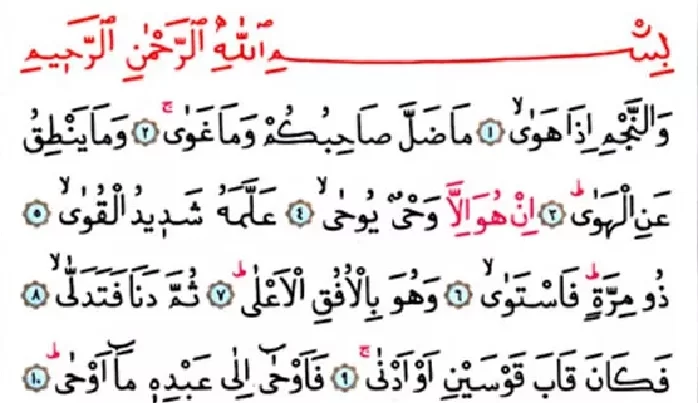 بِسْــــــــــمِ اللّٰهِ الرَّحْمٰنِ الرَّحٖيمِ
وَالنَّجْمِ اِذَا هَوٰىۙ ﴿١﴾ مَا ضَلَّ صَاحِبُكُمْ وَمَا غَوٰىۚ ﴿٢﴾ وَمَا يَنْطِقُ
عَنِ الْهَوٰىؕ ﴿٣﴾ اِنْ هُوَ اِلَّا وَحْيٌ يُوحٰىۙ ﴿٤﴾ عَلَّمَهُ شَدٖيدُ الْقُوٰىۙ ﴿٥﴾
ذُو مِرَّةٍؕ فَاسْتَوٰىۙ ﴿٦﴾ وَهُوَ بِالْاُفُقِ الْاَعْلٰىؕ ﴿٧﴾ ثُمَّ دَنَا فَتَدَلّٰىۙ ﴿٨﴾
فَكَانَ قَابَ قَوْسَيْنِ اَوْ اَدْنٰىۚ ﴿٩﴾ فَاَوْحٰٓى اِلٰى عَبْدِهٖ مَٓا اَوْحٰىؕ ﴿١٠﴾